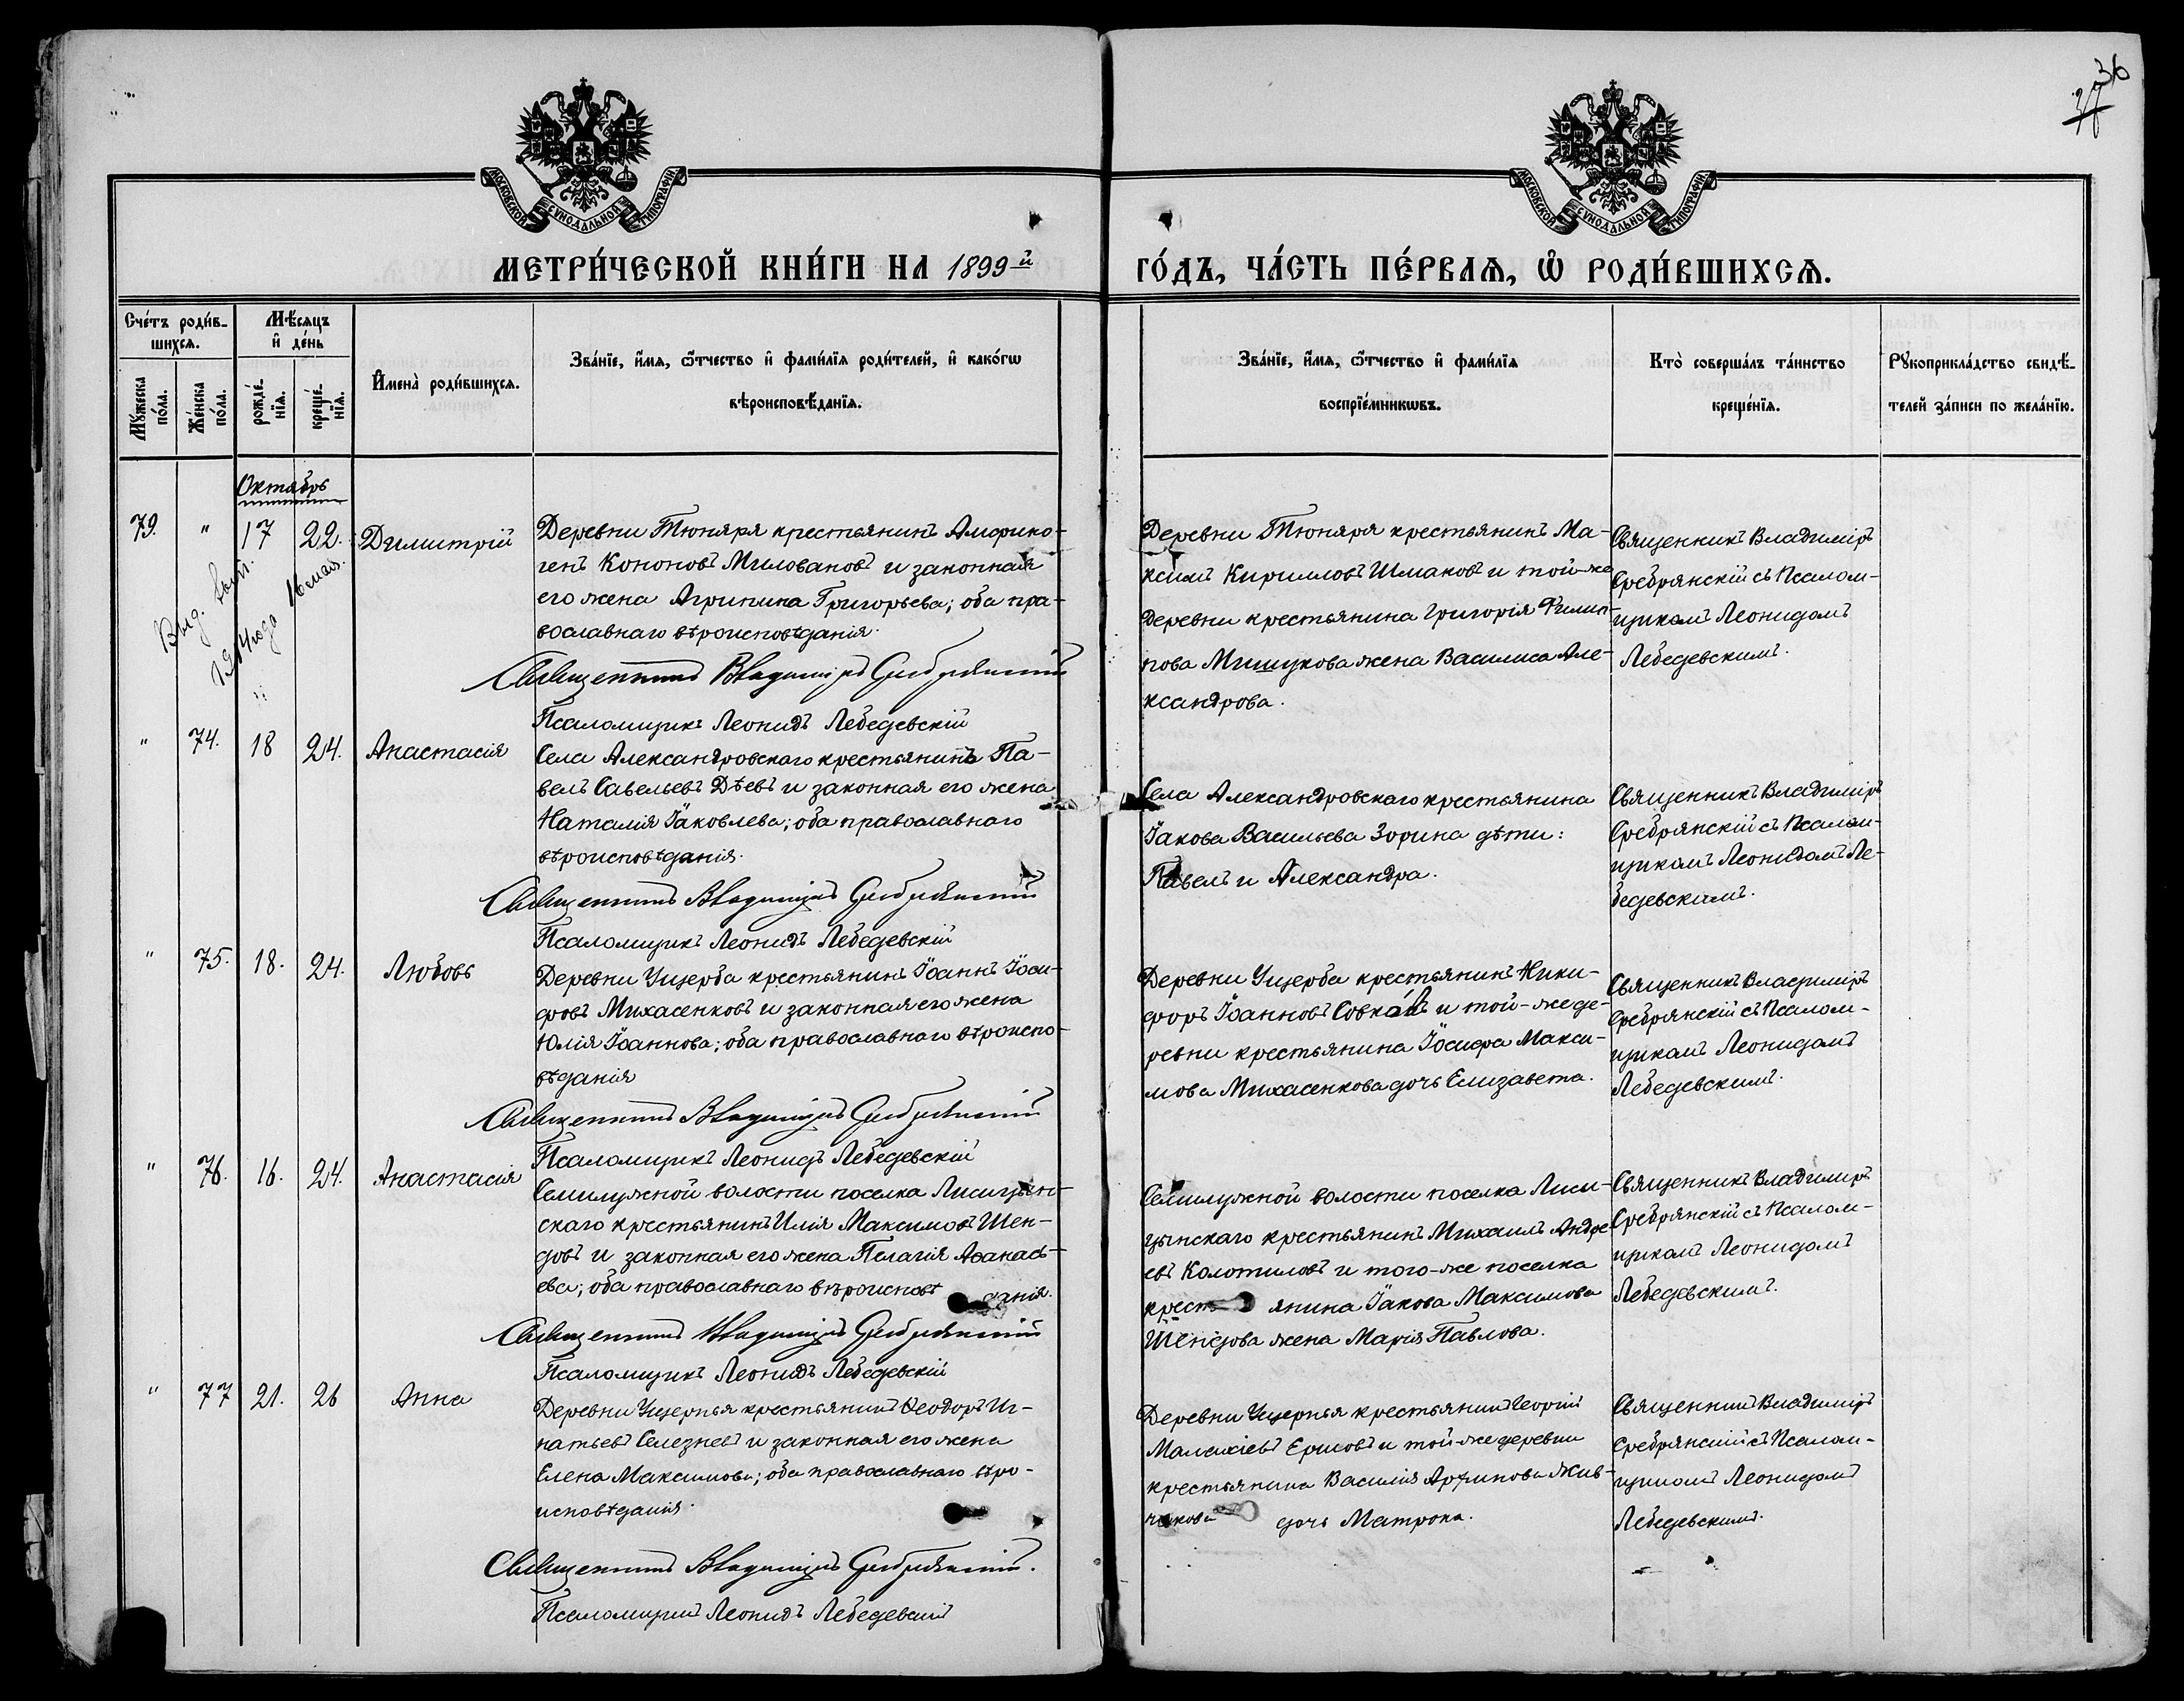 36
МОСКОВСКОЙ СУНОДАЛЬНОЙ ТИПОГРАФІИ
МОСКОВСКОЙ СУНОДАЛЬНОЙ ТИПОГРАФІИ
МЕТРИ́ЧЕСКОЙ КНИ́ГИ НА 1899-й
ГО́ДЪ, ЧА́СТЬ ПЕ́РВАѦ, Ѡ҆ РОДИ́ВШИХСѦ.
Сче́тъ роди́в-
шихсѧ.
Мꙋ́жеска по́ла.
Же́нска по́ла.
Мѣ́сѧцъ
и҆ де́нь
рожде́-
нїѧ.
креще́-
нїѧ.
И҆мена̀ роди́вшихсѧ.
Зва́нїе, и҆́мѧ, ѻ҆́тчество и҆ фами́лїѧ роди́телей, и҆ како́гѡ
вѣроисповѣ́данїѧ.
Зва́нїе, и҆́мѧ, ѻ҆́тчество и҆ фами́лїѧ
воспрїе́мникѡвъ.
Кто̀ соверша́лъ та́инство
креще́нїѧ.
Рꙋкоприкла́дство свидѣ́-
телей за́писи по жела́нїю.
Октябрь
79. " 17 22. Димитрій
Выд. вып.
16 мая
Деревни Тюняря крестьянинъ Амфино-
генъ Кононовъ Миловановъ и законная
его жена Агрипина Григорьева; оба пра-
вославнаго вѣроисповѣданія.
Священникъ Владиміръ Сребрянскій
Псаломщикъ Леонидъ Лебедевскій
Деревни Тюняря крестьянинъ Ма-
ксимъ Кирилловъ Шмаковъ и той-же
деревни крестьянина Григорія Филип-
пова Мишукова жена Василиса Але-
ксандрова.
Священникъ Владиміръ
Сребрянскій съ Псалом-
щикомъ Леонидомъ
Лебедевскимъ.
" 74. 18 24. Анастасія
Села Александровскаго крестьянинъ Па-
велъ Савельевъ Дѣевъ и законная его жена
Наталія Іаковлева; оба православнаго
вѣроисповѣданія.
Священникъ Владиміръ Сребрянскій
Псаломщикъ Леонидъ Лебедевскій
Села Александровскаго крестьянина
Іакова Васильева Зорина дѣти:
Павелъ и Александра.
Священникъ Владиміръ
Сребрянскій съ Псалом-
щикомъ Леонидомъ Ле-
бедевскимъ.
" 75. 18. 24. Любовь
Деревни Ущерба крестьянинъ Іоаннъ Іоси-
фовъ Михасенковъ и законная его жена
Юлія Іоаннова; оба православнаго вѣроиспо-
вѣданія
Священникъ Владиміръ Сребрянскій
Псаломщикъ Леонидъ Лебедевскій
Деревни Ущерба крестьянинъ Ники-
форъ Іоанновъ и той-же де-
ревни крестьянина Іосифа Макси-
мова Михасенкова дочь Елизавета.
Священникъ Владиміръ
Сребрянскій съ Псалом-
щикомъ Леонидомъ
Лебедевскимъ.
" 76. 16. 24. Анастасія
Семилужной волости поселка Лисицын-
скаго крестьянинъ Илія Максимовъ Шен-
довъ и законная его жена Пелагія Аѳанась-
ева; оба православнаго вѣроисповѣданія.
Священникъ Владиміръ Сребрянскій
Псаломщикъ Леонидъ Лебедевскій
Семилужной волости поселка Лиси-
цынскаго крестьянинъ Михаилъ Андре-
евъ Колотиловъ и того-же поселка
крестьянина Іакова Максимова
Шендова жена Марія Павлова.
Священникъ Владиміръ
Сребрянскій съ Псалом-
щикомъ Леонидомъ
Лебедевскимъ.
" 77 21. 26 Анна
Деревни Ущерпья крестьянинъ Ѳеодоръ Иг-
натьевъ Селезневъ и законная его жена
Елена Максимова; оба православнаго вѣро-
исповѣданія.
Священникъ Владиміръ Сребрянскій.
Псаломщикъ Леонидъ Лебедевскій
Деревни Ущерпья крестьянинъ Георгій
Малахіевъ Ершовъ и той-же деревни
крестьянина Василія
дочь Матрона.
Священникъ Владиміръ
Сребрянскій съ Псалом-
щикомъ Леонидомъ
Лебедевскимъ.